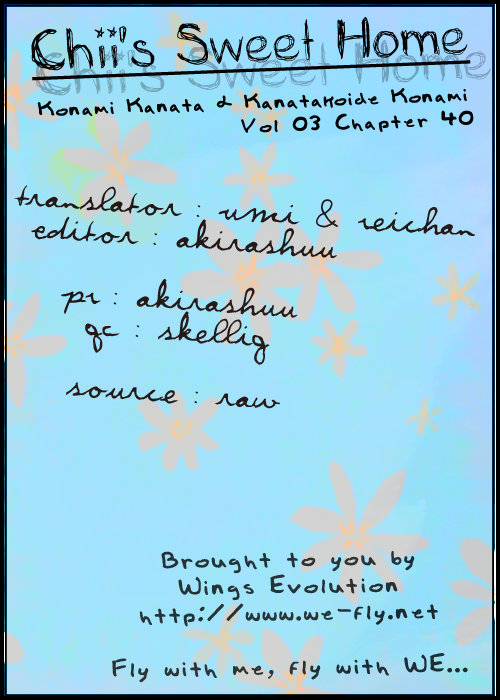 Chii's Sweet Home
Konami Kanata & Kanatakoide Konami
Vol 03 Chapter 40
translator : umi & reichan
editor : akirashuu
pr : akirashuu
qc : skellig
source : raw
Brought to you by
Wings Evolution
http://www.we-fly.net
Fly with me, fly with WE...